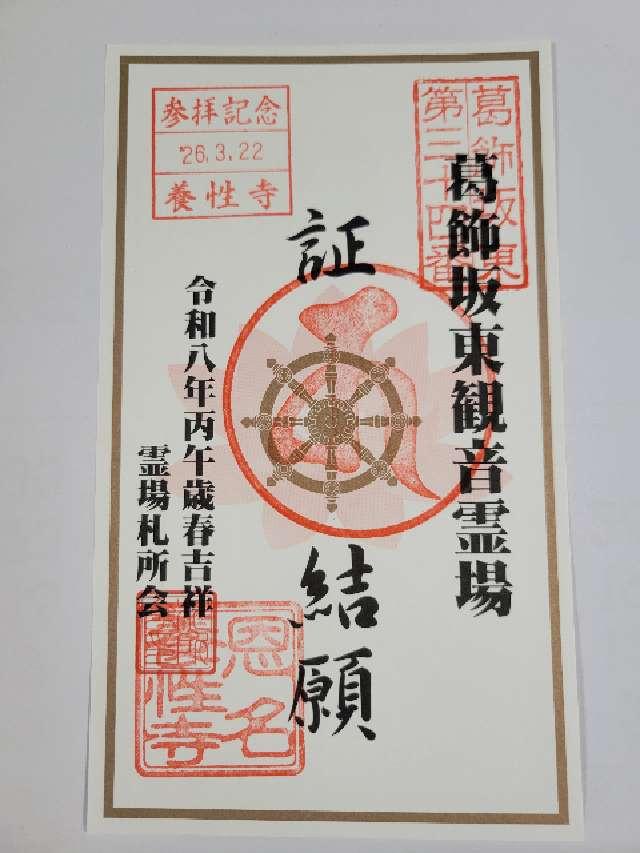 葛飾坂東
第三十四番
葛飾坂東観音霊場
証
結願
参拝記念
'26.3.22
養性寺
令和八年丙午歳春吉祥
霊場札所会
恩名
養性寺